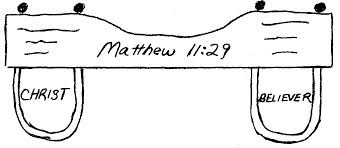 Matthew 11:29
CHRIST
BELIEVER